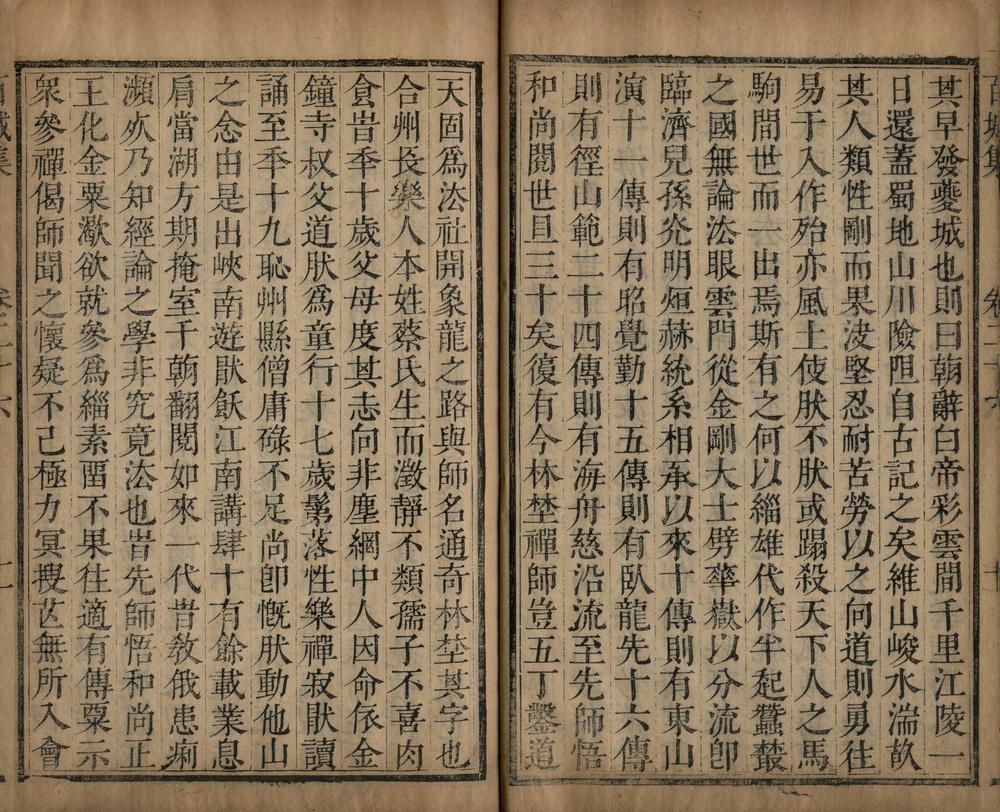 其早發夔城也則曰朝辭白帝彩雲間千里江陵一
日還蓋蜀地山川險阻自古記之矣維山峻水湍故
其人類性剛而果決堅忍耐苦勞以之向道則勇往
易于入作殆亦風土使肰不肰或蹋殺天下人之馬
駒間世而一出焉斯有之何以緇雄代作半起蠶叢
之國無論法眼雲門從金剛大士劈華嶽以分流卽
臨濟兒孫炎明烜赫統系相承以來十傳則有東山
演十一傳則有昭覺勤十五傳則有臥龍先十六傳
則有徑山範二十四傳則有海舟慈沿流至先師悟
和尚閱世且三十矣復有今林埜禪師豈五丁鑿道
天固爲法社開象龍之路與師名通奇林埜其字也
合州長樂人本姓蔡氏生而澂靜不類孺子不喜肉
食旹季十歲父母度其志向非塵網中人因命依金
鐘寺叔父道肰爲童行十七歲鬀落性樂禪寂猒讀
誦至季十九恥州縣僧庸碌不足尚卽慨肰動他山
之念由是出峽南遊猒飫江南講肆十有餘載業息
肩當湖方期掩室千朝翻閱如來一代旹敎俄患痢
瀕㱔乃知經論之學非究竟法也旹先師悟和尚正
王化金粟歘欲就參爲緇素畱不果往適有傳粟示
衆參禪偈師聞之懷疑不已極力冥搜苾無所入會